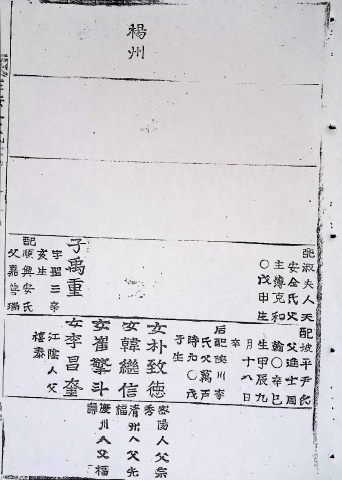 楊州
配淑夫人天
安全氏父
主簿克和
〇戊申生
子禹重
字聖三辛
亥生
配順興安氏
父嘉善瑞
配坡平尹氏
父進士周
翰〇辛巳
生甲辰九
月十八日
卒
后配陜川李
氏父萬戶
時元〇戊
子生
女朴致德
密陽人父宗
秀
女韓繼信
淸州人父光
福
女崔擎斗
慶州人父福
女李昌奎
江陰人父
禧泰